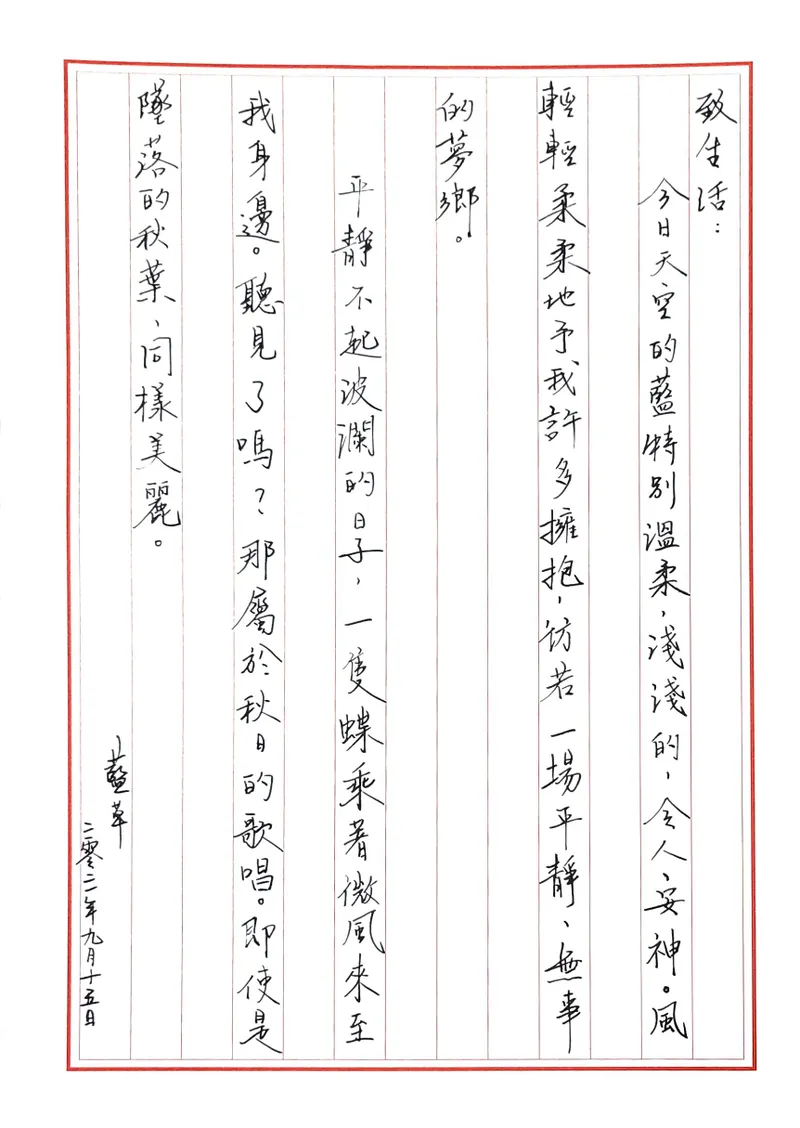 致生活：
今日天空的藍特別溫柔，淺淺的，令人安神。風
輕輕柔柔地予我許多擁抱，彷若一場平靜、無事
的夢鄉。
平靜不起波瀾的日子，一隻蝶乘著微風來至
我身邊。聽見了嗎？那屬於秋日的歌唱。即使是
墜落的秋葉，同樣美麗。
藍草
二零二二年九月十五日